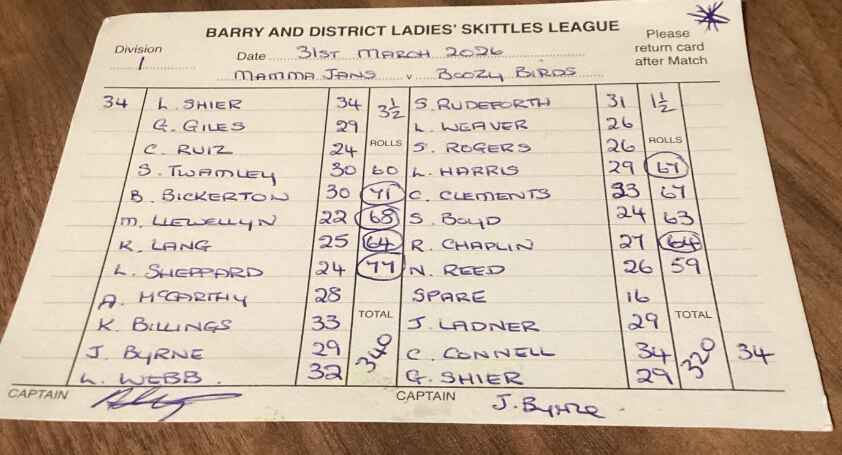 BARRY AND DISTRICT LADIES' SKITTLES LEAGUE
Division 1
Date 31ST MARCH 2026
Please return card after Match
MAMMA JANS v BOOZY BIRDS
34 L. SHIER 34 3½ S. RUDEFORTH 31 1½
G. GILES 29 L. WEAVER 26
C. RUIZ 24 ROLLS S. ROGERS 26 ROLLS
S. TWAMLEY 30 60 L. HARRIS 29 67
B. BICKERTON 30 71 C. CLEMENTS 23 67
M. LLEWELLYN 22 68 S. BOYD 24 63
K. LANG 25 64 R. CHAPLIN 27 64
L. SHEPPARD 24 77 N. REED 26 59
A. MCCARTHY 28 SPARE 16
K. BILLINGS 33 TOTAL J. LADNER 29 TOTAL
J. BYRNE 29 340 C. CONNELL 34 320 34
L. WEBB. 32 G. SHIER 29
CAPTAIN CAPTAIN J. Byrne